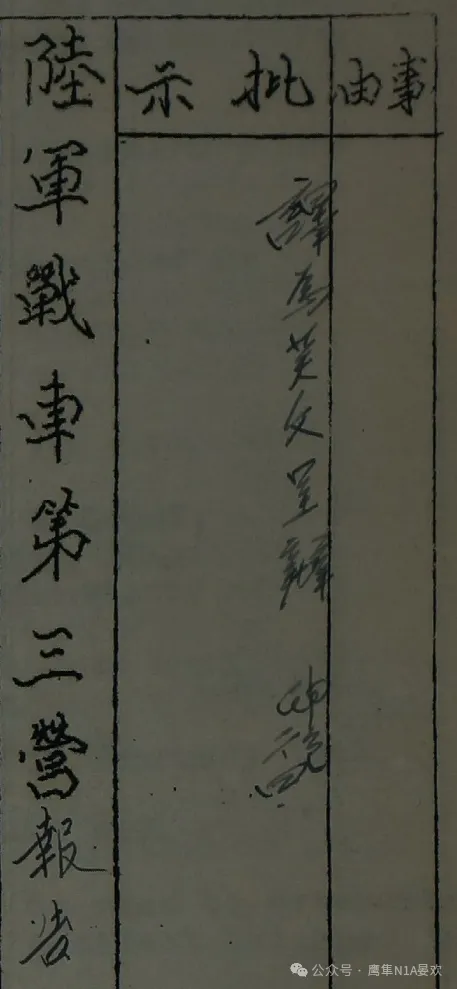 事由
批示
譯為英文呈辦
陸軍戰車第三營報告
公众号·鹰隼N1A晏欢